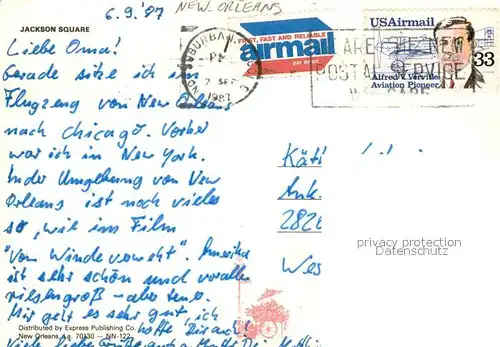 6.9.87
NEW ORLEANS
JACKSON SQUARE
FIRST, FAST AND RELIABLE
airmail
par avion
USAirmail
33
Alfred V. Verville
Aviation Pioneer
SUBURBAN
PM
7 SEP
1987
POSTAL SERVICE
Liebe Oma!
Gerade sitze ich im
Flugzeug von New Orleans
nach Chicago. Vorher
war ich in New York.
In der Umgebung von New
Orleans ist noch vieles
so, wie im Film
"Vom Winde verweht". Amerika
ist sehr schön und vor allem
riesengroß - aber teuer.
Mir geht es sehr gut, ich
hoffe Dir auch!
Viele liebe Grüße
Käti
Ank.
282
Wes
privacy protection
watermark
Distributed by Express Publishing Co.
New Orleans, La. 70130 — NN-122